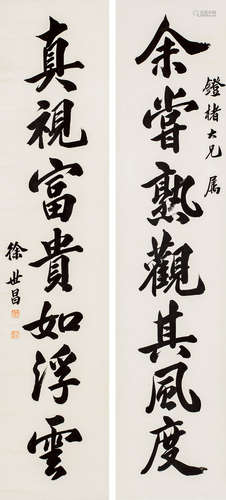 鐙楮大兄属
余嘗熟觀其風度
真視富貴如浮雲
徐世昌